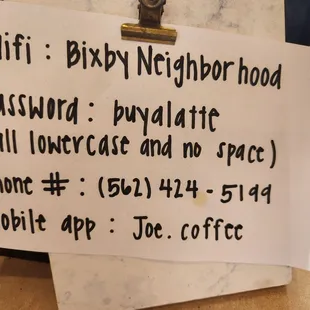 Wifi : Bixby Neighborhood
password : buyalatte
(all lowercase and no space)
phone # : (562) 424 - 5199
mobile app : Joe. coffee